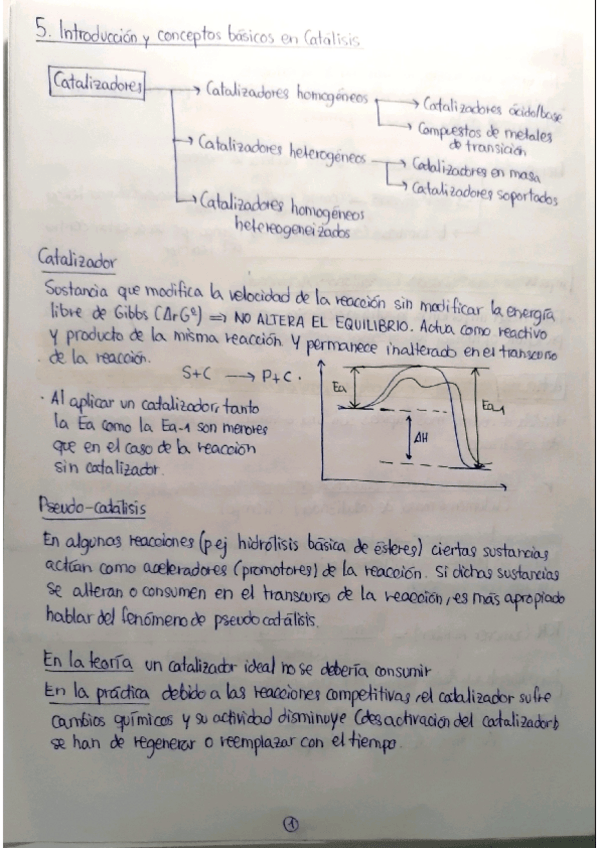 5. Introducción y conceptos básicos en Catálisis
Catalizadores
Catalizadores homogéneos
Catalizadores ácido/base
Compuestos de metales
de transición
Catalizadores heterogéneos
Catalizadores en masa
Catalizadores soportados
Catalizadores homogéneos
hetereogeneizados
Catalizador
Sustancia que modifica la velocidad de la reacción sin modificar la energía
libre de Gibbs (ΔrGº) ⟹ NO ALTERA EL EQUILIBRIO. Actua como reactivo
y producto de la misma reacción y permanece inalterado en el transcurso
de la reacción.
S+C ⟶ P+C.
· Al aplicar un catalizador, tanto
la Ea como la Ea-1 son menores
que en el caso de la reacción
sin catalizador.
Ea
Ea-1
ΔH
Pseudo-catálisis
En algunas reacciones (p.ej hidrólisis básica de ésteres) ciertas sustancias
actúan como aceleradores (promotores) de la reacción. Si dichas sustancias
se alteran o consumen en el transcurso de la reacción, es más apropiado
hablar del fenómeno de pseudo catálisis.
En la teoría un catalizador ideal no se debería consumir
En la práctica debido a las reacciones competitivas, el catalizador sufre
cambios químicos y su actividad disminuye (desactivación del catalizador);
se han de regenerar o reemplazar con el tiempo.
1